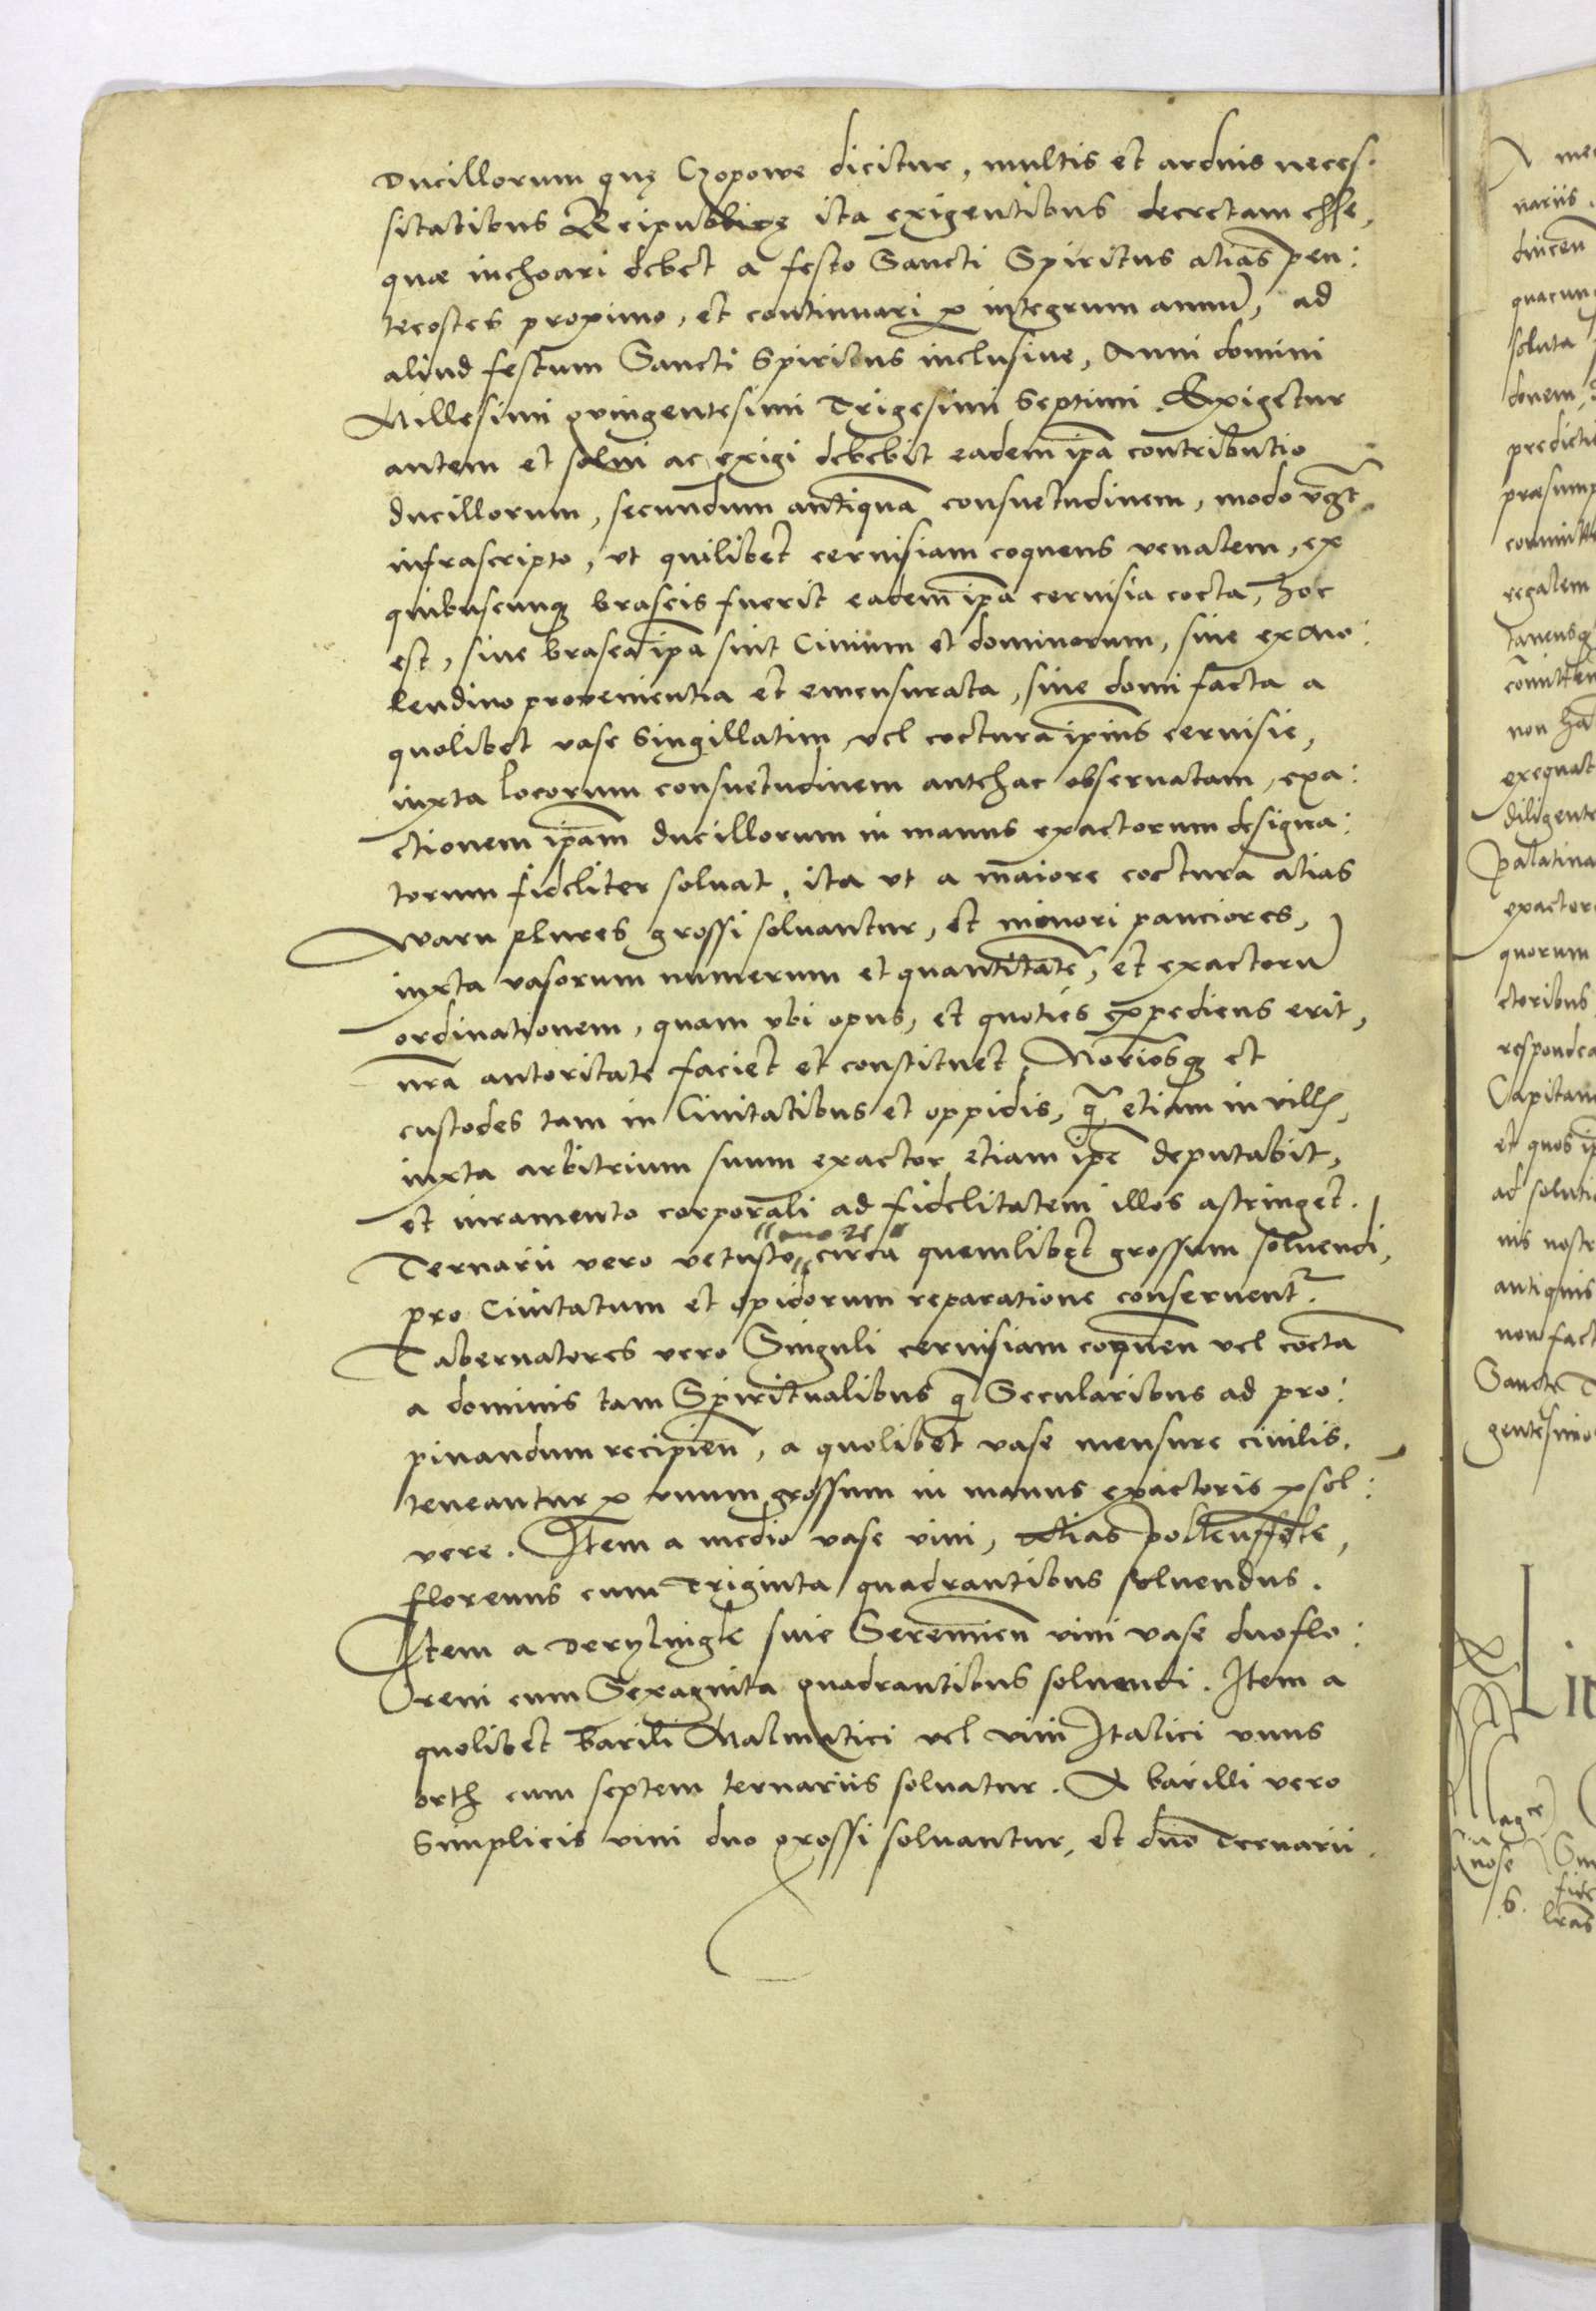 Ducillorum quę Czopowe dicitur, multis et arduis neces:
sitatibus Reipublicę ita exigentibus decretam esse,
quæ inchoari debet a festo Sancti Spiritus alias pen:
tecostes proximo, et continuari p integrum annũ, ad
aliud festum Sancti Spiritus inclusiue, Anni domini
Millesimi quingentesimi Trigesimi Septimi. Exigetur
autem et solui ac exigi debebit eadem ipã contributio
ducillorum, secundum antiquã consuetudinem, modo
infrascripto, vt quilibet ceruisiam coquens venalem, ex
quibuscunq braseis fuerit eadem ipã ceruisia cocta, hoc
est, siue brasea ipã sint Ciuium et dominorum, siue ex mo:
lendino prouenientia et emensurata, siue domi facta a
quolibet vase singillatim vel coctura ipius ceruisie,
iuxta locorum consuetudinem antehac obseruatam, exa:
ctionem ipam ducillorum in manus exactorum designa:
torum fideliter soluat, ita vt a maiore coctura alias
Waru plures grossi soluantur, et minori pauciores,
iuxta vasorum numerum et quantitatẽ, et exactorũ
ordinationem, quam vbi opus, et quoties expediens erit,
nrã autoritate faciet et constituet, Notriosq et
custodes tam in Ciuitatibus et oppidis, q̃ etiam in vill
iuxta arbitrium suum exactor etiam ipẽ deputabit,
et iuramento corporali ad fidelitatem illos astringet.
Ternarii vero vetusto circa quemlibet grossum soluendi,
pro Ciuitatum et opidorum reparatione conseruent.
Tabernatores vero Singuli ceruisiam coquen vel coctã
a dominis tam Spiritualibus q̃ Secularibus ad pro:
pinandum recipien, a quolibet vase mensure ciuilis,
teneantur p vnum grossum in manus exactoris psol:
vere. Item a medio vase vini, alias poltenffesse,
florenus cum Triginta quadrantibus soluendus.
Item a Derylingk siue Seremien vini vase duo flo:
reni cum Sexaginta quadrantibus soluendi. Item a
quolibet barili Malmatici vel vini Italici vnus
orth cum septem ternariis soluatur. A barilli vero
Simplicis vini duo grossi soluantur, et duo Ternarii.